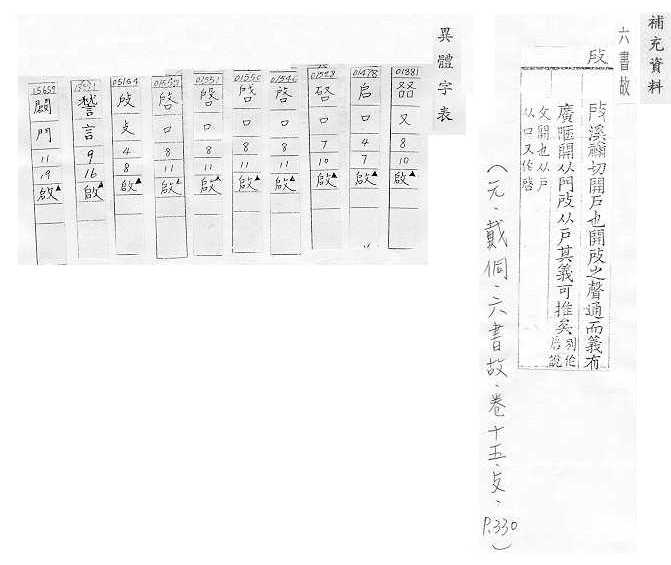 補充資料
六書故
㪃
㪃溪禰切開戶也開㪃之聲通而義有
廣陿開从門㪃从戶其義可推矣別作
启說
文開也从戶
从口又作啓
(元．戴侗．六書故．卷十五．攴．P.330)
異體字表
01881
又
8
10
啟▲
01478
启
口
4
7
啟▲
01528
口
7
10
啟▲
01546
啓
口
8
11
啟▲
01550
口
8
11
啟▲
01551
口
8
11
啟▲
口
8
11
啟▲
05154
㪃
攴
4
8
啟▲
言
9
16
啟▲
15659
門
11
19
啟▲